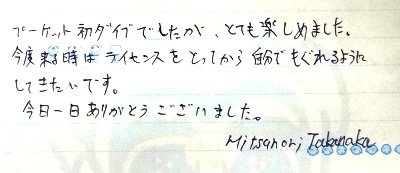 プーケット初ダイブでしたが、とても楽しめました。
今度来る時はライセンスをとってから自分でもぐれるように
してきたいです。
今日一日ありがとうございました。
Mitsunori Takanaka